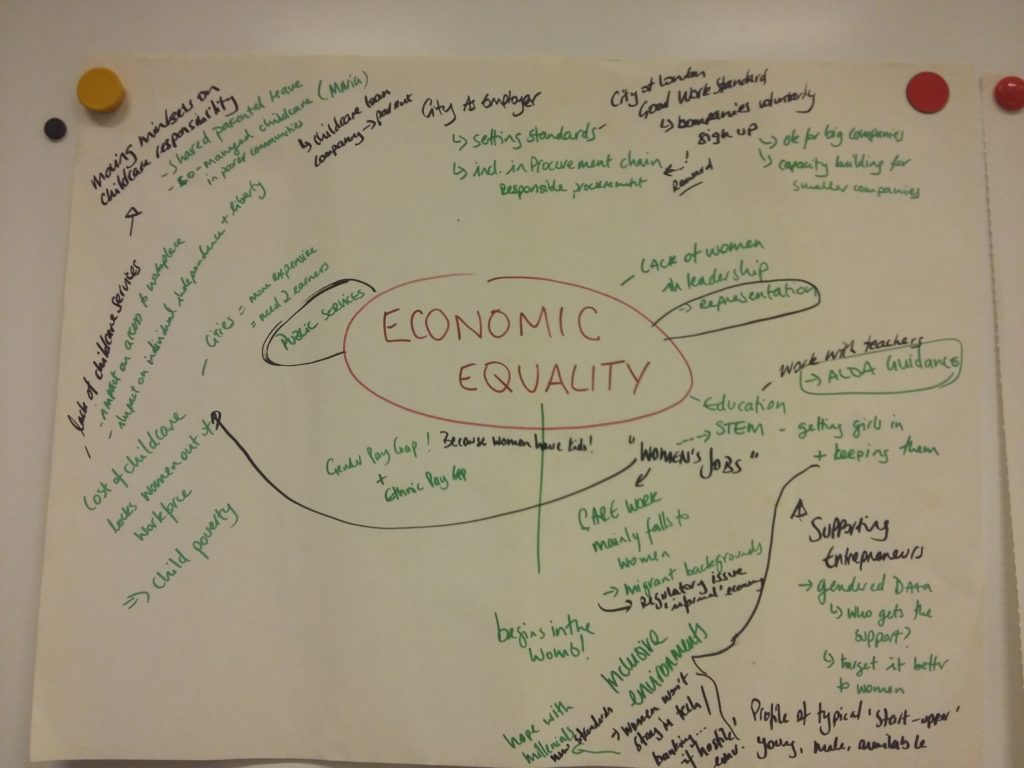 Moving mindsets on
childcare responsibility
- shared parental leave
- co-managed childcare (Maria)
in poorer communities
↳ childcare loan
company → parent
City As Employer
↳ setting standards
↳ incl. in Procurement chain
Responsible procurement
City of London
Good Work Standard
↳ companies voluntarily
sign up
Reward
↳ ok for big companies
↳ capacity building for
smaller companies
- lack of childcare services
- impact on access to workplace
- impact on individual independence + liberty
- Cities = more expensive
= need 2 earners
PUBLIC SERVICES
ECONOMIC
EQUALITY
LACK of women
in leadership
→ representation
- Education
work with teachers
→ ALDA Guidance
→ STEM - getting girls in
+ keeping them
Cost of childcare
locks women out of
workforce
⇒ Child poverty
Gender Pay Gap! Because women have kids!
+
Ethnic Pay Gap
"WOMEN'S JOBS"
CARE WORK
mainly falls to
women
→ migrant backgrounds
→ Regulatory issue
'informal' economy
begins in the
womb!
Inclusive
environments
→ women won't
stay in tech/
banking...
if 'hostile'
hope with
millenials
new standards
Supporting
Entrepreneurs
→ gendered DATA
↳ who gets the
support?
↳ target it better
to women
Profile of typical 'start-upper'
young, male, available